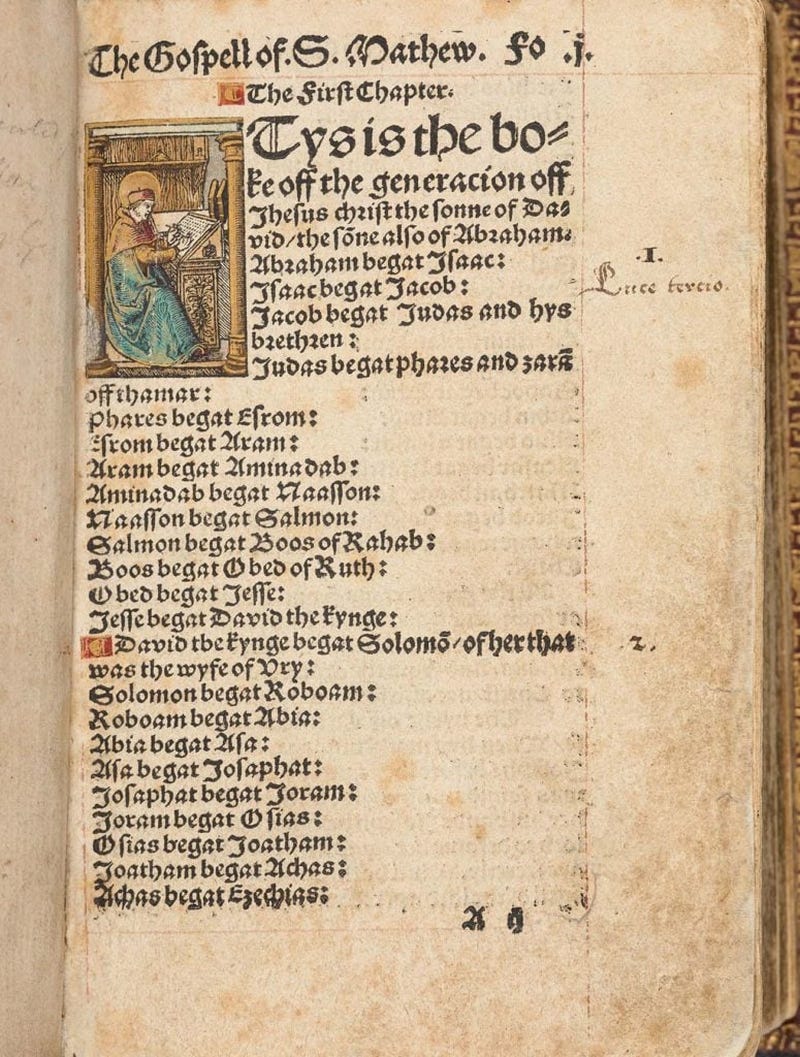 The Gospell of. S. Mathew. Fo .j.
The First Chapter.
Tys is the bo⸗
ke off the generacion off
Jhesus christ the sonne of Da⸗
vid/the sõne also of Abraham.
Abraham begat Isaac:
Isaac begat Jacob:
Jacob begat Judas and hys
brethren:
Judas begat phares and zarã
off thamar:
Phares begat Esrom:
Esrom begat Aram:
Aram begat Aminadab:
Aminadab begat Naasson:
Naasson begat Salmon:
Salmon begat Boos of Rahab:
Boos begat Obed of Ruth:
Obed begat Jesse:
Jesse begat David the kynge:
David the kynge begat Solomõ/of her that
was the wyfe of Vry:
Solomon begat Roboam:
Roboam begat Abia:
Abia begat Asa:
Asa begat Josaphat:
Josaphat begat Joram:
Joram begat Osias:
Osias begat Joatham:
Joatham begat Achas:
Achas begat Ezechias:
A ij
.I.
Luce tercio.
2.